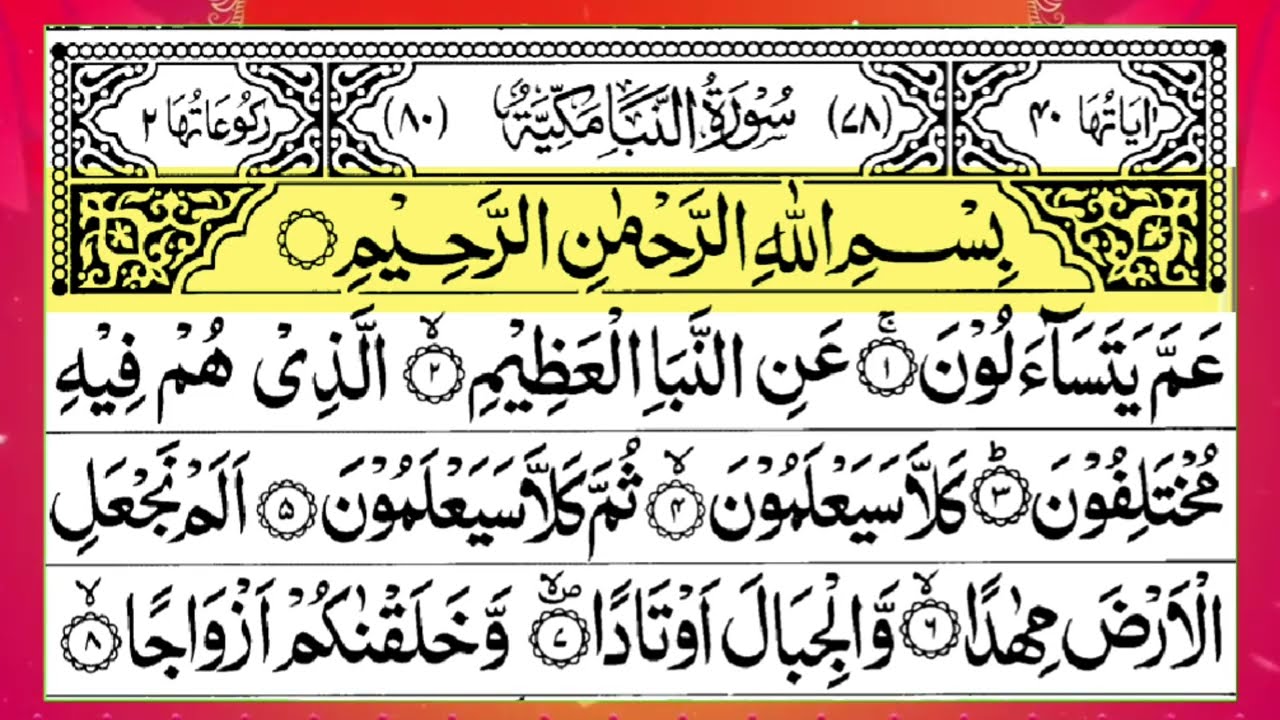 اٰيَاتُهَا ۴۰ (۷۸) سُوْرَةُ النَّبَاِ مَكِّيَّةٌ (۸۰) رُكُوْعَاتُهَا ۲
بِسْمِ اللّٰهِ الرَّحْمٰنِ الرَّحِيْمِ
عَمَّ يَتَسَآءَلُوْنَ ۚ‏﴿۱﴾ عَنِ النَّبَاِ الْعَظِيْمِ ۙ‏﴿۲﴾ الَّذِىْ هُمْ فِيْهِ
مُخْتَلِفُوْنَ ؕ‏﴿۳﴾ كَلَّا سَيَعْلَمُوْنَ ۙ‏﴿۴﴾ ثُمَّ كَلَّا سَيَعْلَمُوْنَ ﴿۵﴾ اَلَمْ نَجْعَلِ
الْاَرْضَ مِهٰدًا ۙ‏﴿۶﴾ وَّالْجِبَالَ اَوْتَادًا ۙ‏ۖ﴿۷﴾ وَّخَلَقْنٰكُمْ اَزْوَاجًا ۙ‏﴿۸﴾